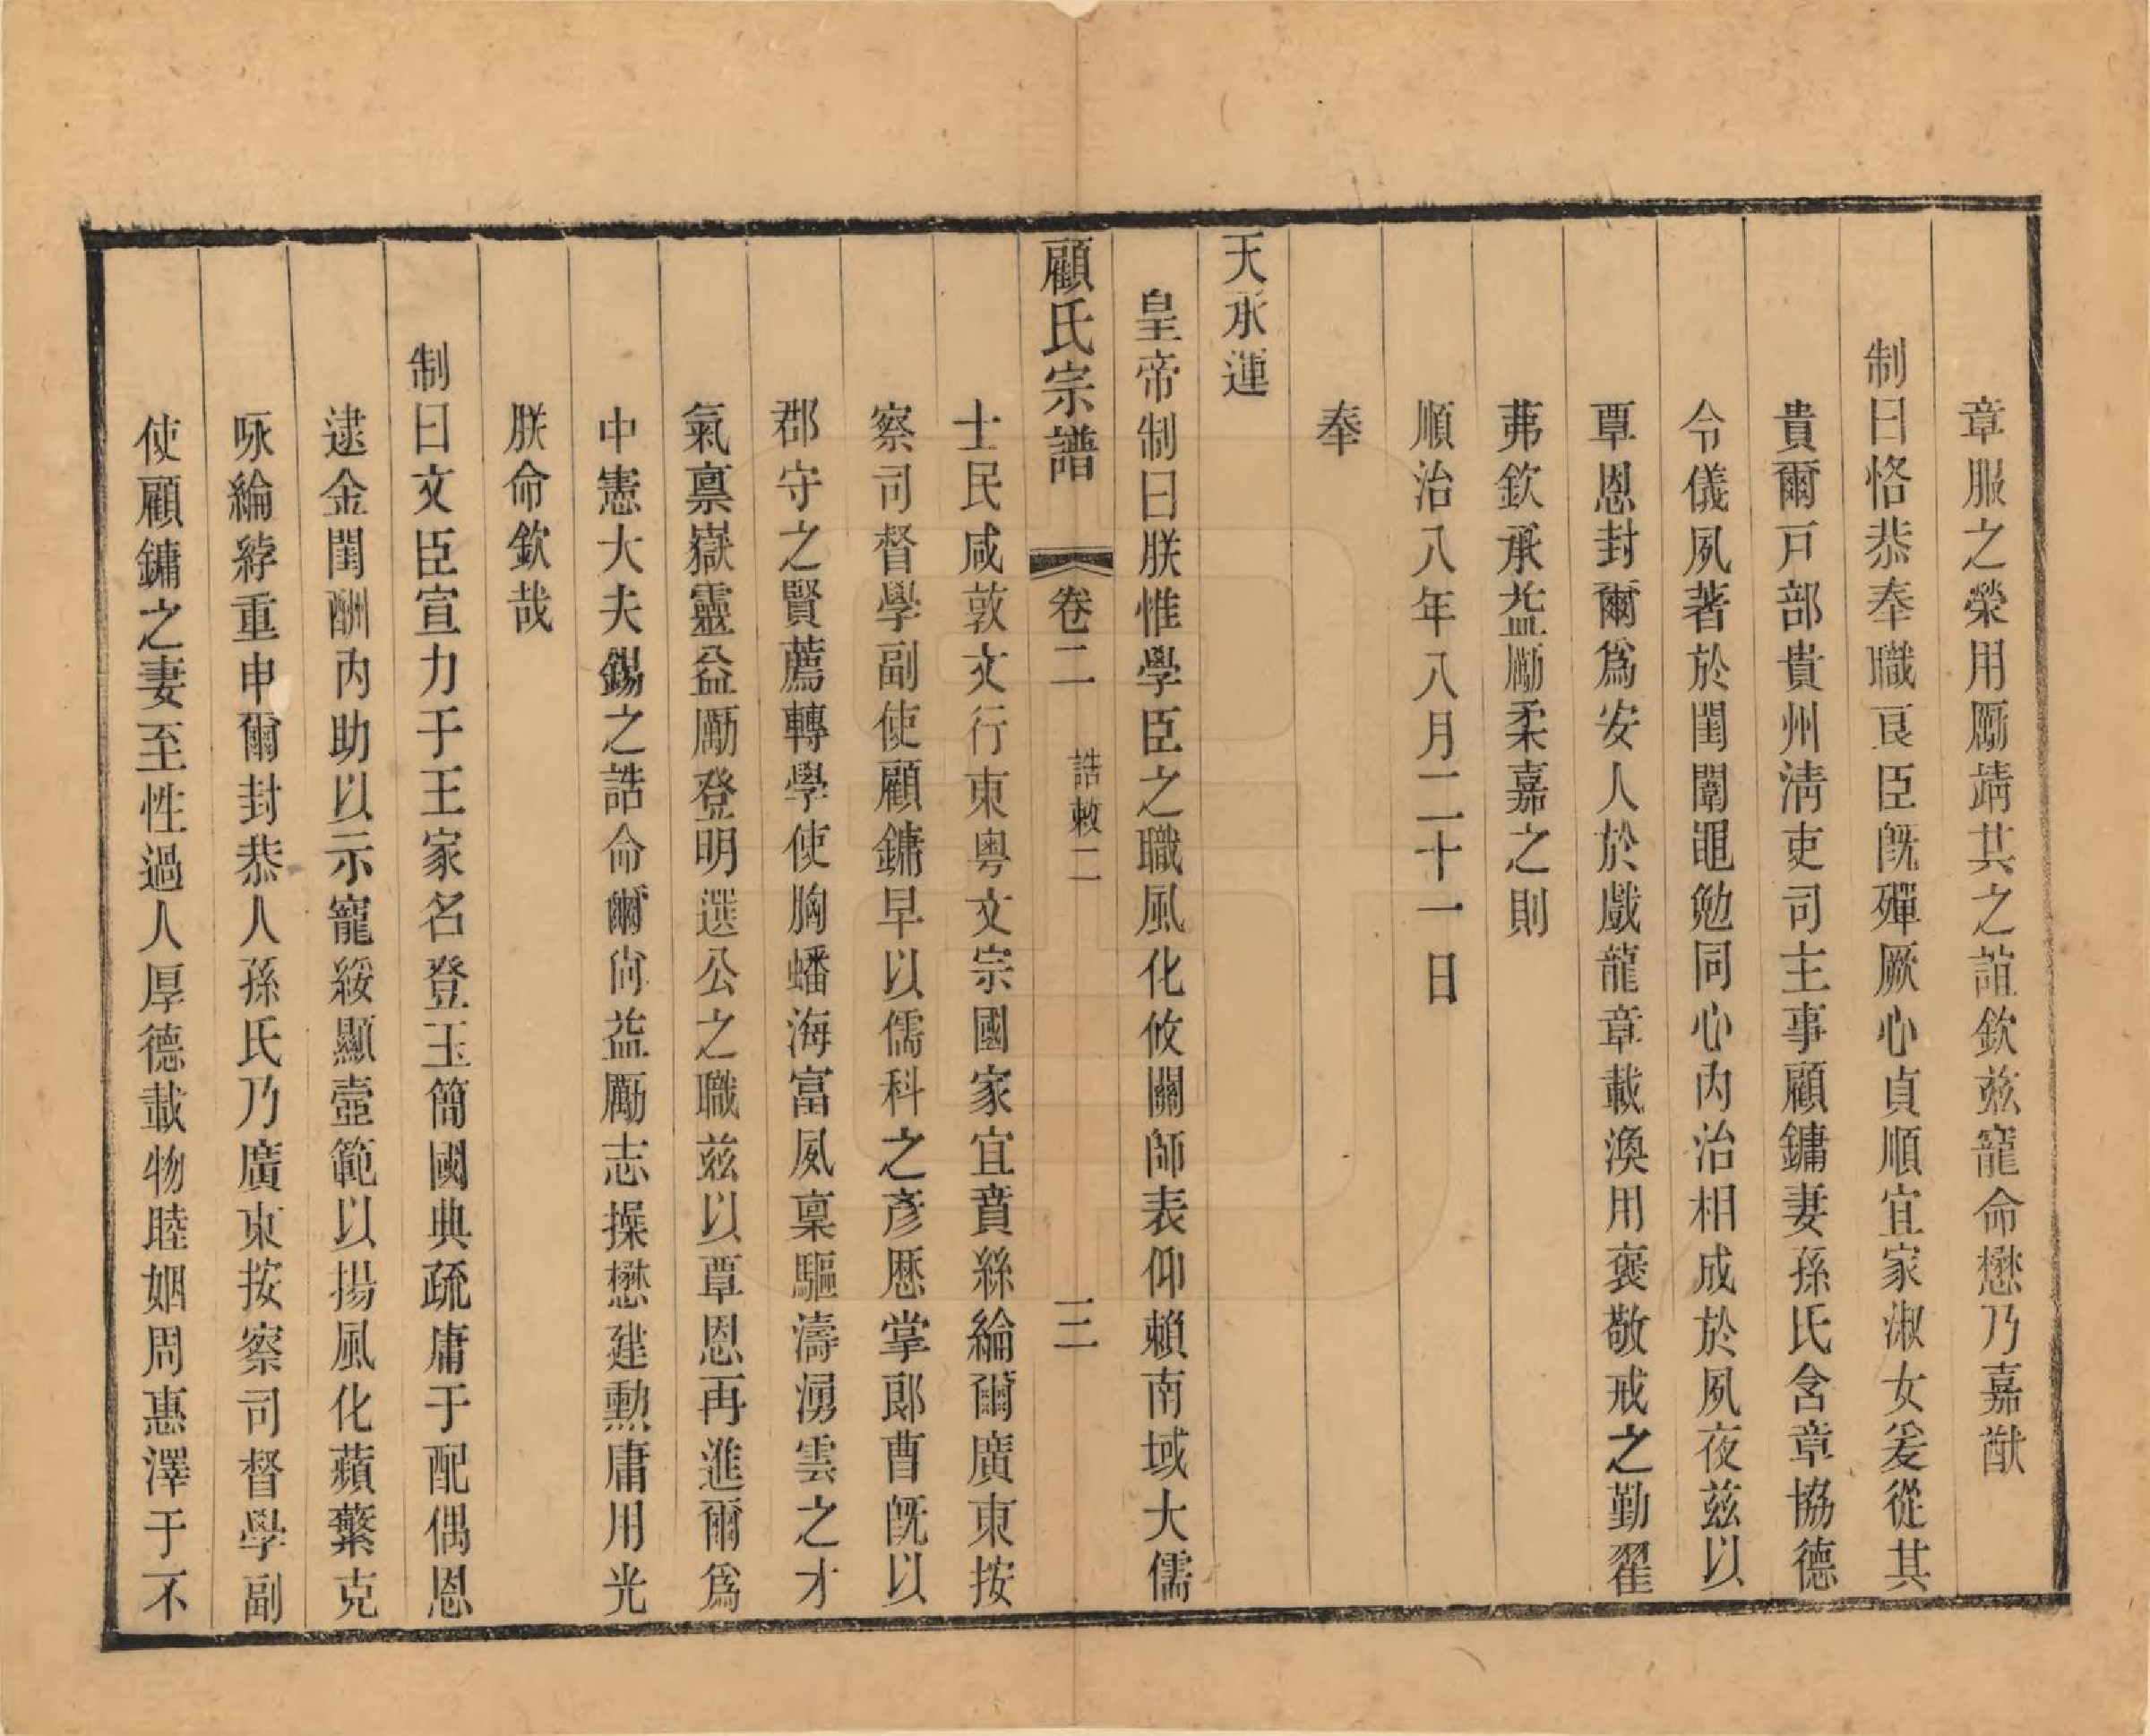 章服之榮用勵靖共之誼欽茲寵命懋乃嘉猷
制曰恪恭奉職良臣既殫厥心貞順宜家淑女爰從其
貴爾戶部貴州淸吏司主事顧鏞妻孫氏含章協德
令儀夙著於閨闈黽勉同心內治相成於夙夜茲以
覃恩封爾爲安人於戲龍章載渙用褒敬戒之勤翟
茀欽承益勵柔嘉之則
順治八年八月二十一日
奉
天承運
皇帝制曰朕惟學臣之職風化攸關師表仰賴南域大儒
顧氏宗譜 卷二 誥敕二 三
士民咸敦文行東粵文宗國家宜賁絲綸爾廣東按
察司督學副使顧鏞早以儒科之彥歷掌郞曹旣以
郡守之賢薦轉學使胸蟠海富夙稟驅濤湧雲之才
氣禀嶽靈益勵登明選公之職茲以覃恩再進爾爲
中憲大夫錫之誥命爾尙益勵志操懋建勳庸用光
朕命欽哉
制曰文臣宣力于王家名登玉簡國典疏庸于配偶恩
逮金閨酬內助以示寵綏顯壼範以揚風化蘋蘩克
咏綸綍重申爾封恭人孫氏乃廣東按察司督學副
使顧鏞之妻至性過人厚德載物睦姻周惠澤于不